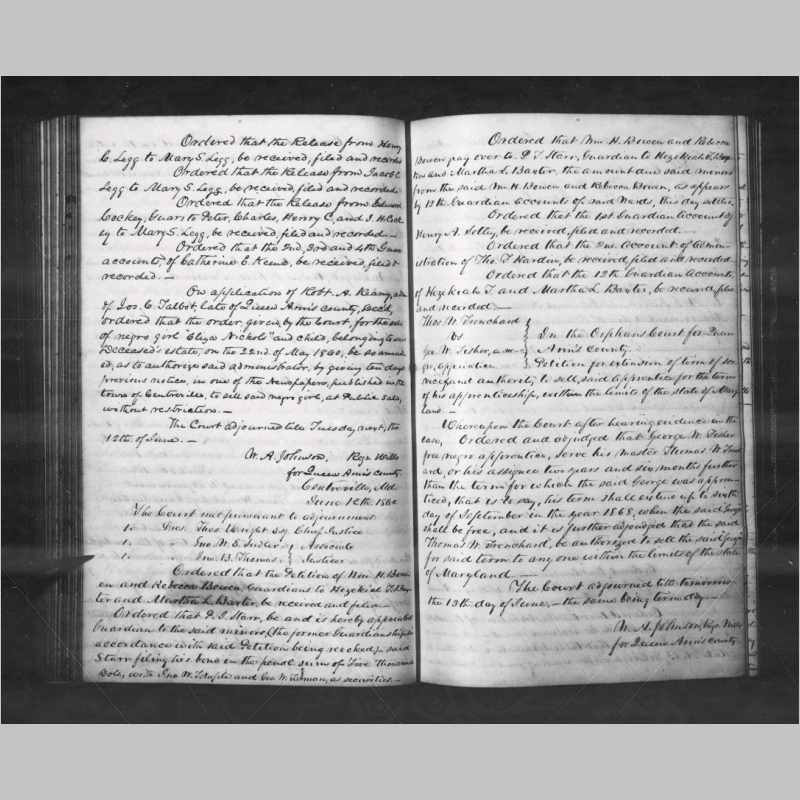 Ordered that the Release from Henry
C. Legg to Mary S. Legg, be received, filed and recorded
Ordered that the Release from Jacob C.
Legg to Mary S. Legg, be received, filed and recorded.
Ordered that the Release from Edward
Cockey, Guar to Peter, Charles, Henry C. and J. H. Cock
ey to Mary S. Legg, be received, filed and recorded. —
Ordered that the 2nd, 3rd and 4th Guar
accounts, of Catherine E. Kemp, be received, filed &
recorded. —
On application of Robt. A.
of Jos. C. Talbot, late of Queen Ann's county, decd,
ordered that the order, given, by the Court, for the sale
of negro girl "Eliza Nichols" and child, belonging to said
Deceased's estate, on the 22nd of May 1860, be so amend
ed, as to authorize said administrator, by giving ten days
previous notice, in one of the Newspapers, published in the
town of Centreville, to sell said negro girl, at Public sale,
without restriction. —
The Court adjourned till Tuesday next, the
12th of June. —
W. A. Johnson, Regr Wills
for Queen Ann's county
Centreville, Md
June 12th 1860
The Court met pursuant to adjournment
Thos Wright Esq Chief Justice
Jno. W. E. Sudler } Associate
Jno. B. Thomas } Justices
Ordered that the Petition of Wm. H. Bow
en and Rebecca Bowen, Guardians to Hezekiah T. Bax
ter and Martha L. Baxter, be received and filed —
Ordered that P. T. Starr, be and is hereby appointed
Guardian to the said minors, (the former Guardianship in
accordance with said Petition being revoked,) said
Starr filing his bond in the penal sum of Five thousand
Dols, with Jno W. and Geo. W. as securities. —
Ordered that Wm H. Bowen and Rebecca
Bowen pay over to P. T. Starr, Guardian to Hezekiah T. Bax
ter and Martha L. Baxter, the amount due said minors
from the said Wm H. Bowen and Rebecca Bowen, as appears
by 12th Guardian accounts of said Wards, this day settled.
Ordered that the 1st Guardian account of
Henry A. be received, filed and recorded. —
Ordered that the 2nd Account of Admin-
istration of Tho. T. Harden, be received, filed and recorded
Ordered that the 12th Guardian Accounts,
of Hezekiah T. and Martha L Baxter, be received, filed
and recorded. —
Thos W. Trenchard }
vs } In the Orphans Court for Queen
Geo. W. Fisher, a ne- } Ann's County.
gro, apprentice } Petition for extension of term of ser
vice, and authority to sell, said apprentice for the term
of his apprenticeship, within the limits of the state of Mary
land. —
Whereupon the Court after hearing evidence in the
case, Ordered and adjudged that George W. Fisher
free negro apprentice, serve his master Thomas W. Trench
ard, or his assignee two years and six months further
than the term for which the said George was appren-
ticed, that is to say, his term shall extend up to sixth
day of September in the year 1868, when the said George
shall be free, and it is further adjudged that the said
Thomas W. Trenchard, be authorized to sell the said George
for said term to any one within the limits of the state
of Maryland —
The Court adjourned till tomorrow
the 13th day of June, — the same being term day —
W. A. Johnson, Regr Wills
for Queen Ann's county